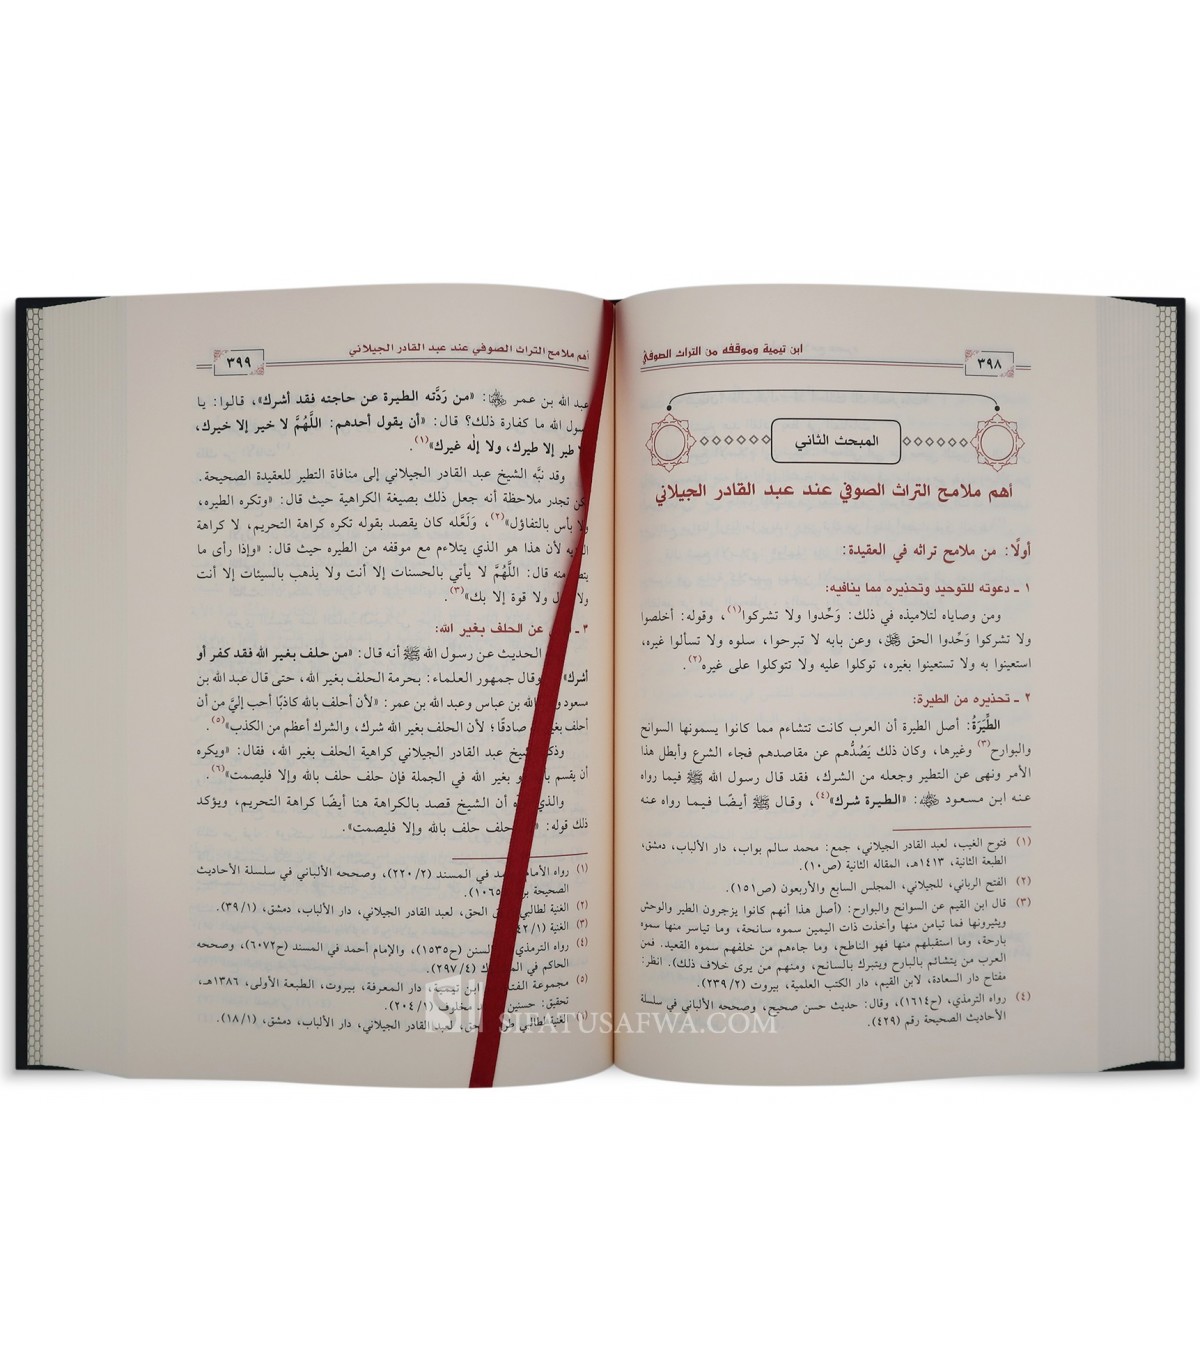 ٣٩٨
ابن تيمية وموقفه من التراث الصوفي
المبحث الثاني
أهم ملامح التراث الصوفي عند عبد القادر الجيلاني
أولًا: من ملامح تراثه في العقيدة:
١ ـ دعوته للتوحيد وتحذيره مما ينافيه:
ومن وصاياه لتلاميذه في ذلك: وَحِّدوا ولا تشركوا(١)، وقوله: أخلصوا
ولا تشركوا وَحِّدوا الحق ﷻ، وعن بابه لا تبرحوا، سلوه ولا تسألوا غيره،
استعينوا به ولا تستعينوا بغيره، توكلوا عليه ولا تتوكلوا على غيره(٢).
٢ ـ تحذيره من الطيرة:
الطِّيَرَةُ: أصل الطيرة أن العرب كانت تتشاءم مما كانوا يسمونها السوانح
والبوارح(٣) وغيرها، وكان ذلك يَصُدُّهم عن مقاصدهم فجاء الشرع وأبطل هذا
الأمر ونهى عن التطير وجعله من الشرك، فقد قال رسول الله ﷺ فيما رواه
عنه ابن مسعود رضي الله عنه: «الطيرة شرك»(٤)، وقال ﷺ أيضًا فيما رواه عنه
(١) فتوح الغيب، لعبد القادر الجيلاني، جمع: محمد سالم بواب، دار الألباب، دمشق،
الطبعة الثانية، ١٤١٣هـ، المقاله الثانية (ص١٠).
(٢) الفتح الرباني، للجيلاني، المجلس السابع والأربعون (ص١٥١).
(٣) قال ابن القيم عن السوانح والبوارح: (أصل هذا أنهم كانوا يزجرون الطير والوحش
ويثيرونها فما تيامن منها وأخذت ذات اليمين سموه سانحة، وما تياسر منها سموه
بارحة، وما استقبلهم منها فهو الناطح، وما جاءهم من خلفهم سموه القعيد. فمن
العرب من يتشائم بالبارح ويتبرك بالسانح، ومنهم من يرى خلاف ذلك). انظر:
مفتاح دار السعادة، لابن القيم، دار الكتب العلمية، بيروت (٢/ ٢٣٩).
(٤) رواه الترمذي، (ح١٦١٤)، وقال: حديث حسن صحيح، وصححه الألباني في سلسلة
الأحاديث الصحيحة رقم (٤٢٩).
أهم ملامح التراث الصوفي عند عبد القادر الجيلاني
٣٩٩
عبد الله بن عمر رضي الله عنهما: «من رَدَّته الطيرة عن حاجته فقد أشرك»، قالوا: يا
سول الله ما كفارة ذلك؟ قال: «أن يقول أحدهم: اللَّهُمَّ لا خير إلا خيرك،
طير إلا طيرك، ولا إله غيرك»(١).
وقد نبَّه الشيخ عبد القادر الجيلاني إلى منافاة التطير للعقيدة الصحيحة.
كن تجدر ملاحظة أنه جعل ذلك بصيغة الكراهية حيث قال: «وتكره الطيره،
ولا بأس بالتفاؤل»(٢)، وَلَعَّله كان يقصد بقوله تكره كراهة التحريم، لا كراهة
يه لأن هذا هو الذي يتلاءم مع موقفه من الطيره حيث قال: «وإذا رأى ما
منه قال: اللَّهُمَّ لا يأتي بالحسنات إلا أنت ولا يذهب بالسيئات إلا أنت
ولا ل ولا قوة إلا بك»(٣).
٣ ـ عن الحلف بغير الله:
الحديث عن رسول الله ﷺ أنه قال: «من حلف بغير الله فقد كفر أو
أشرك» وقال جمهور العلماء: بحرمة الحلف بغير الله، حتى قال عبد الله بن
مسعود و الله بن عباس وعبد الله بن عمر: «لأن أحلف بالله كاذبًا أحب إليَّ من أن
أحلف بغير صادقًا؛ لأن الحلف بغير الله شرك، والشرك أعظم من الكذب»(٥).
وذكر يخ عبد القادر الجيلاني كراهية الحلف بغير الله، فقال: «ويكره
أن يقسم با و بغير الله في الجملة فإن حلف حلف بالله وإلا فليصمت»(٦).
والذي ه أن الشيخ قصد بالكراهة هنا أيضًا كراهة التحريم، ويؤكد
ذلك قوله: حلف حلف بالله وإلا فليصمت».
(١) رواه الإمام مد في المسند (٢/ ٢٢٠)، وصححه الألباني في سلسلة الأحاديث
الصحيحة بر ١٠٦٥).
(٢) الغنية لطالبي ق الحق، لعبد القادر الجيلاني، دار الألباب، دمشق، (١/ ٣٩).
(٣) الغنية (١/ ٤٢).
(٤) رواه الترمذي السنن (ح١٥٣٥)، والإمام أحمد في المسند (ح٦٠٧٢)، وصححه
الحاكم في الم ك (٤/ ٢٩٧).
(٥) مجموعة الفتا ابن تيمية، دار المعرفة، بيروت، الطبعة الأولى، ١٣٨٦هـ،
تحقيق: حسنين مخلوف (١/ ٢٠٤).
الغنية لطالبي طر حق، لعبد القادر الجيلاني، دار الألباب، دمشق، (١/ ١٨).
SIFATUSAFWA.COM